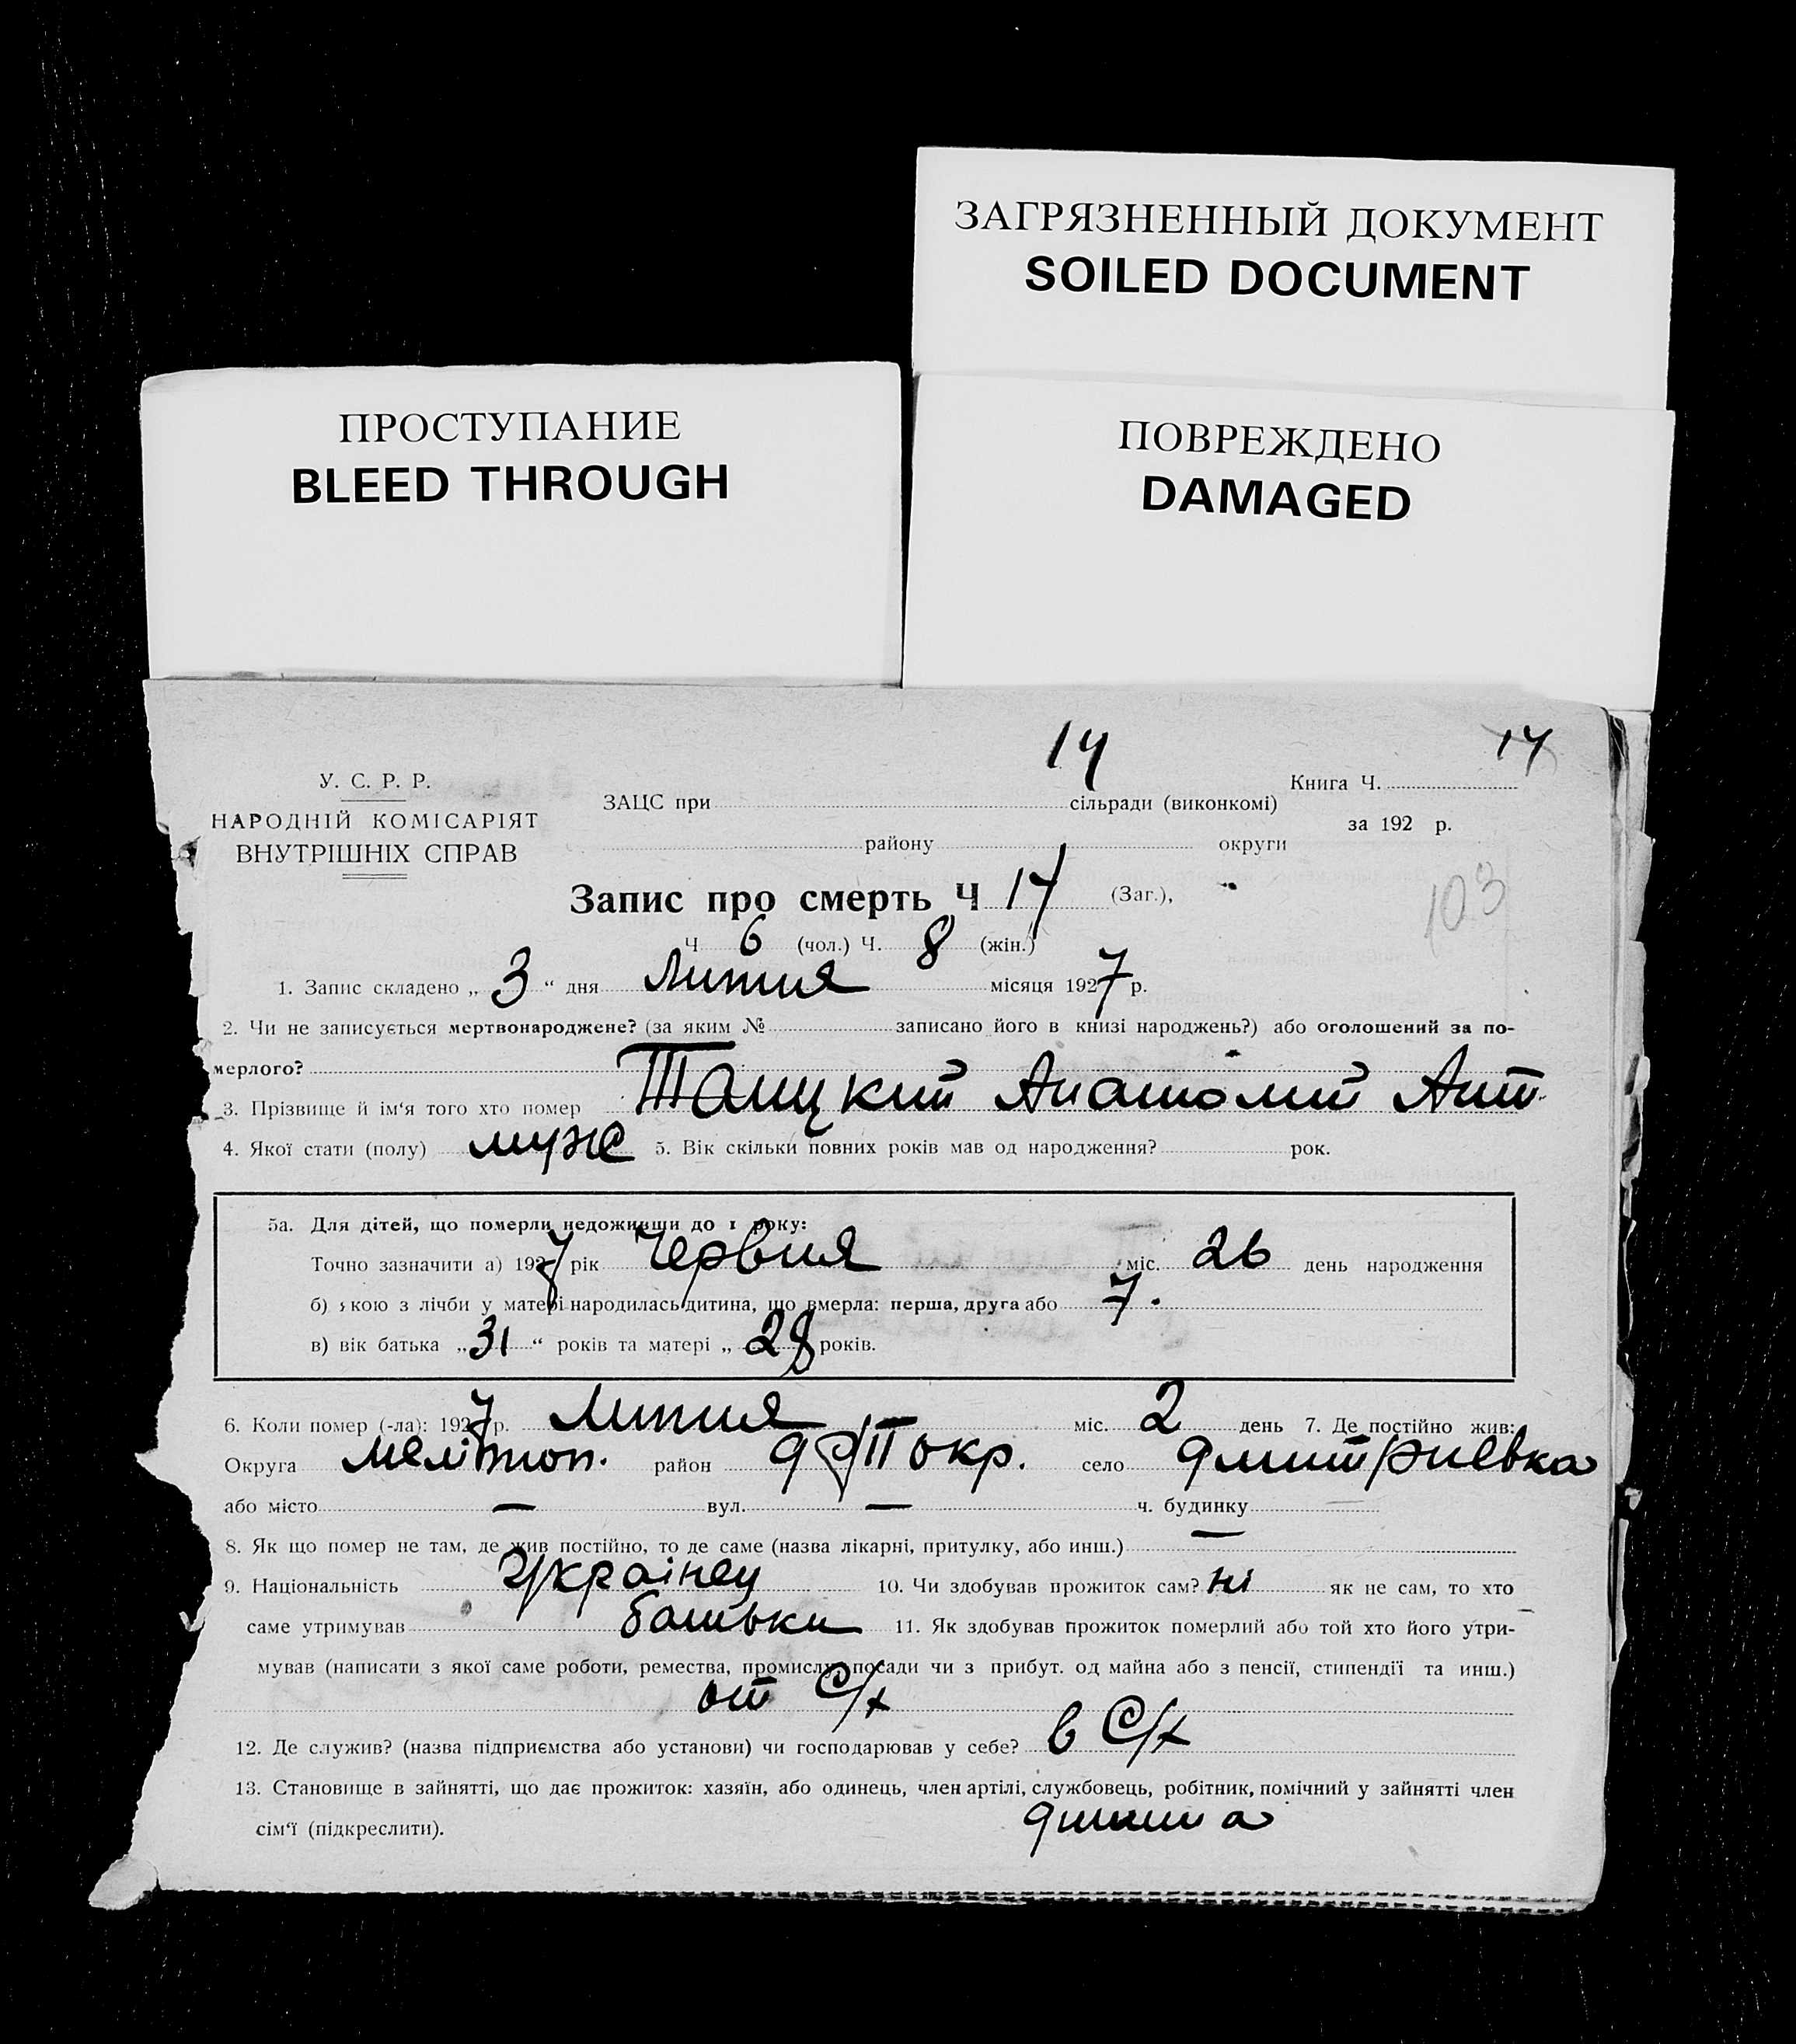 ЗАГРЯЗНЕННЫЙ ДОКУМЕНТ
SOILED DOCUMENT
ПРОСТУПАНИЕ
BLEED THROUGH
ПОВРЕЖДЕНО
DAMAGED
14 14
У. С. Р. Р.
НАРОДНІЙ КОМІСАРІЯТ
ВНУТРІШНІХ СПРАВ
ЗАЦС при сільради (виконкомі)
району округи
Книга Ч.
за 192 р.
103
Запис про смерть Ч 14 (Заг.),
Ч 6 (чол.) Ч. 8 (жін.)
1. Запис складено „ 3 “ дня Липня місяця 1927 р.
2. Чи не записується мертвонароджене? (за яким № записано його в книзі народжень?) або оголошений за по-
мерлого?
3. Прізвище й ім‘я того хто помер Анатолий Ант
4. Якої стати (полу) муже 5. Вік скільки повних років мав од народження? рок.
5а. Для дітей, що померли недоживши до 1 року:
Точно зазначити а) 1927 рік Червня міс. 26 день народження
б) якою з лічби у матері народилась дитина, що вмерла: перша, друга або 7.
в) вік батька „ 31 “ років та матері „ 28 років.
6. Коли помер (-ла): 1927 р. Липня міс. 2 день 7. Де постійно жив:
Округа Меліпоп. район окр. село Дмитриевка
або місто — вул. — ч. будинку —
8. Як що помер не там, де жив постійно, то де саме (назва лікарні, притулку, або инш.) —
9. Національність Украінец 10. Чи здобував прожиток сам? ні як не сам, то хто
саме утримував батьки 11. Як здобував прожиток померлий або той хто його утри-
мував (написати з якої саме роботи, ремества, промислу, посади чи з прибут. од майна або з пенсії, стипендії та инш.)
от С/х
12. Де служив? (назва підприємства або установи) чи господарював у себе? в С/х
13. Становище в зайнятті, що дає прожиток: хазяїн, або одинець, член артілі, службовець, робітник, помічний у зайнятті член
сім‘ї (підкреслити). дитина